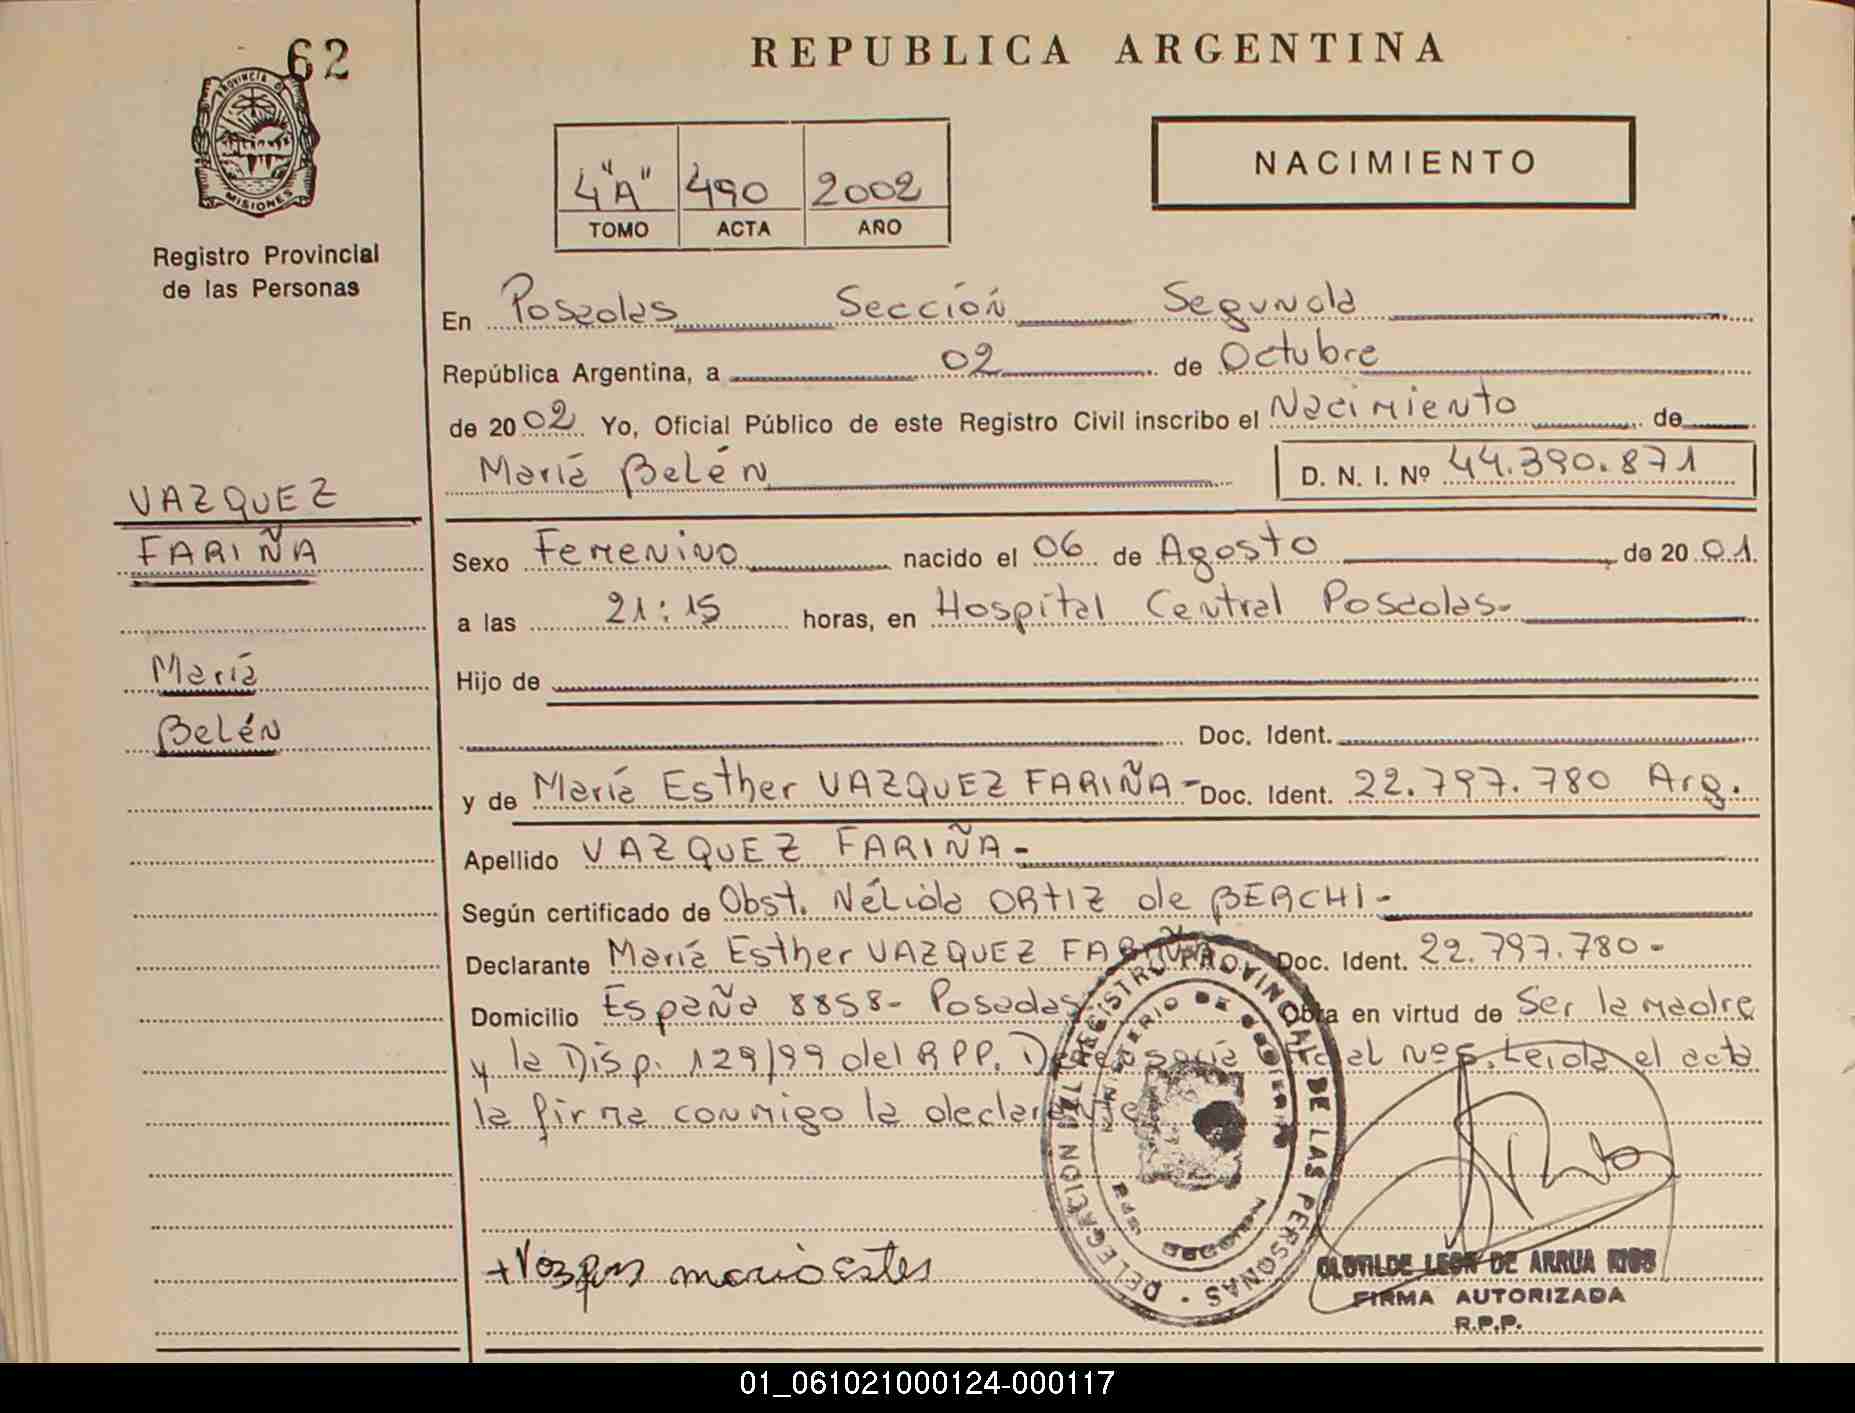 62
REPUBLICA ARGENTINA
PROVINCIA DE
MISIONES
Registro Provincial
de las Personas
4"A" 490 2002
TOMO ACTA AÑO
NACIMIENTO
En Posadas Sección Segunda
República Argentina, a 02 de Octubre
de 2002 Yo, Oficial Público de este Registro Civil inscribo el Nacimiento de
María Belén D. N. I. Nº 44.390.871
VAZQUEZ
FARIÑA
María
Belén
Sexo Femenino nacido el 06 de Agosto de 2001.
a las 21:15 horas, en Hospital Central Posadas-
Hijo de
Doc. Ident.
y de María Esther VAZQUEZ FARIÑA- Doc. Ident. 22.797.780 Arg.
Apellido VAZQUEZ FARIÑA-
Según certificado de Obst. Nélida ORTIZ de BERCHI-
Declarante María Esther VAZQUEZ FARIÑA Doc. Ident. 22.797.780-
Domicilio España 8858- Posadas Obra en virtud de Ser la madre
y la Disp. 129/99 del RPP. Leida el acta
la firma conmigo la declarante
DELEGACION REGISTRO PROVINCIAL DE LAS PERSONAS
MINISTERIO DE GOBIERNO
+Vazques maria ester
CLOTILDE LEON DE ARRUA RIOS
FIRMA AUTORIZADA
R.P.P.
01_061021000124-000117